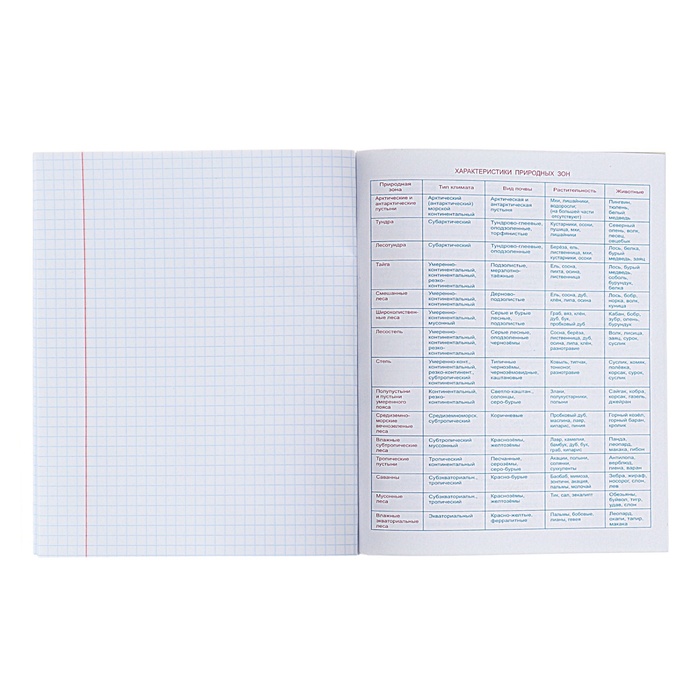 ХАРАКТЕРИСТИКИ ПРИРОДНЫХ ЗОН
Природная зона Тип климата Вид почвы Растительность Животные
Арктические и антарктические пустыни Арктический (антарктический) морской континентальный Арктическая и антарктическая пустыни Мхи, лишайники, водоросли (на большей части отсутствует) Пингвин, тюлень, белый медведь
Тундра Субарктический Тундрово-глеевые, оподзоленные, торфянистые Кустарники, осоки, пушица, мхи, лишайники Северный олень, волк, песец, овцебык
Лесотундра Субарктический Тундрово-глеевые, оподзоленные Берёза, ель, лиственница, мхи, кустарники, осоки Лось, белка, бурый медведь, заяц
Тайга Умеренно-континентальный, континентальный, резко-континентальный Подзолистые, мерзлотно-таёжные Ель, сосна, пихта, осина, лиственница Лось, бурый медведь, соболь, бурундук, белка
Смешанные леса Умеренно-континентальный, континентальный Дерново-подзолистые Ель, сосна, дуб, клён, липа, осина Лось, бобр, норка, волк, куница
Широколиственные леса Умеренно-континентальный, муссонный Серые и бурые лесные, подзолистые Граб, вяз, клён, дуб, бук, пробковый дуб Кабан, бобр, зубр, олень, бурундук
Лесостепь Умеренно-континентальный, континентальный, резко-континентальный Серые лесные, оподзоленные чернозёмы Сосна, берёза, лиственница, дуб, осина, липа, клён, разнотравие Волк, лисица, заяц, сурок, суслик
Степь Умеренно-конт., континентальный, резко-континент., субтропический континентальный Типичные чернозёмы, чернозёмовидные, каштановые Ковыль, типчак, тонконог, разнотравие Суслик, хомяк, полёвка, корсак, сурок, суслик
Полупустыни и пустыни умеренного пояса Континентальный, резко-континентальный Светло-каштан., солонцы, серо-бурые Злаки, полукустарники, полыни Сайгак, кобра, корсак, газель, джейран
Средиземноморские вечнозеленые леса Средиземноморск. субтропический Коричневые Пробковый дуб, маслина, лавр, кипарис, пиния Горный козёл, горный баран, кролик
Влажные субтропические леса Субтропический муссонный Краснозёмы, желтозёмы Лавр, камелия, бамбук, дуб, бук, граб, кипарис Панда, леопард, макака, гибон
Тропические пустыни Тропический континентальный Песчанные, серозёмы, серо-бурые Акация, полыни, солянки, суккуленты Антилопа, верблюд, гиена, варан
Саванны Субэкваториальн., тропический Красно-бурые Баобаб, мимоза, зонтичн. акация, пальмы, молочай Зебра, жираф, носорог, слон, лев
Мусонные леса Субэкваториальн., тропический Краснозёмы, желтозёмы Тик, сал, эвкалипт Обезьяны, буйвол, тигр, удав, слон
Влажные экваториальные леса Экваториальный Красно-желтые, ферралитные Пальмы, бобовые, лианы, гевея Леопард, окапи, тапир, макака